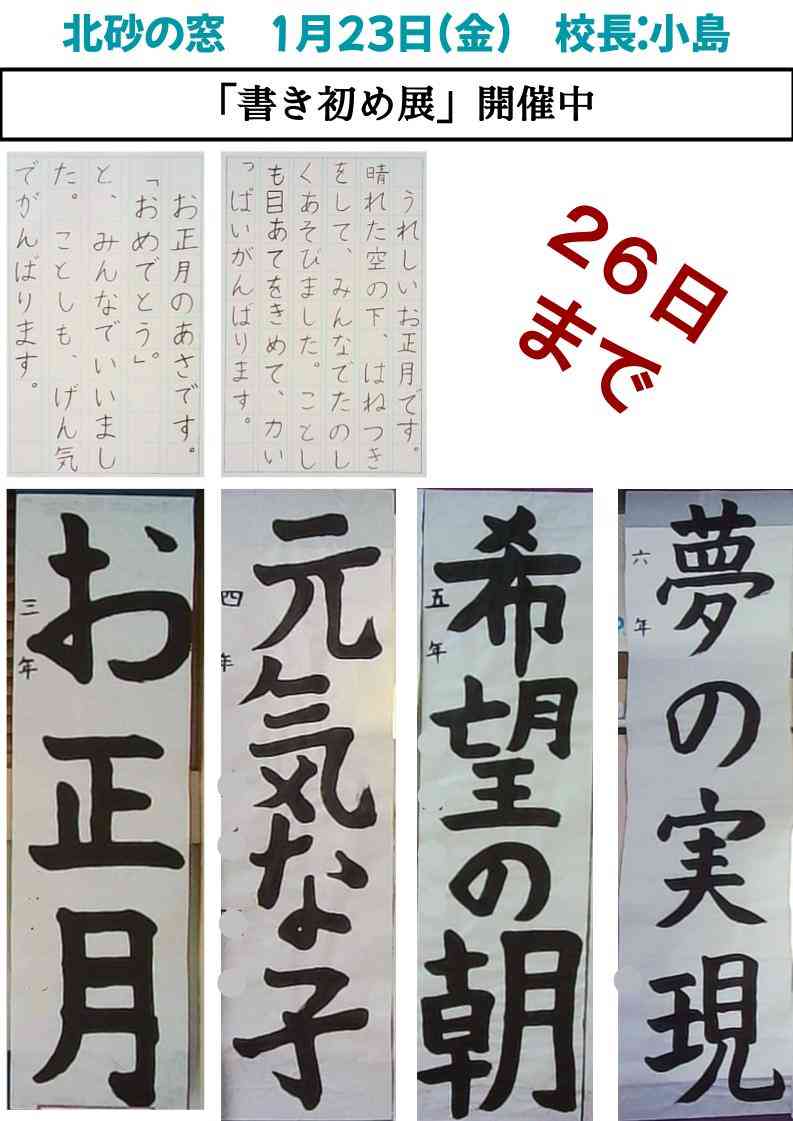 北砂の窓 1月23日(金) 校長:小島
「書き初め展」開催中
お正月のあさです。
「おめでとう」。
と、みんなでいいまし
た。ことしも、げん気
でがんばります。
うれしいお正月です。
晴れた空の下、はねつき
をして、みんなでたのし
くあそびました。ことし
も目あてをきめて、力い
っぱいがんばります。
26日
まで
お正月
三年
元気な子
四年
希望の朝
五年
夢の実現
六年